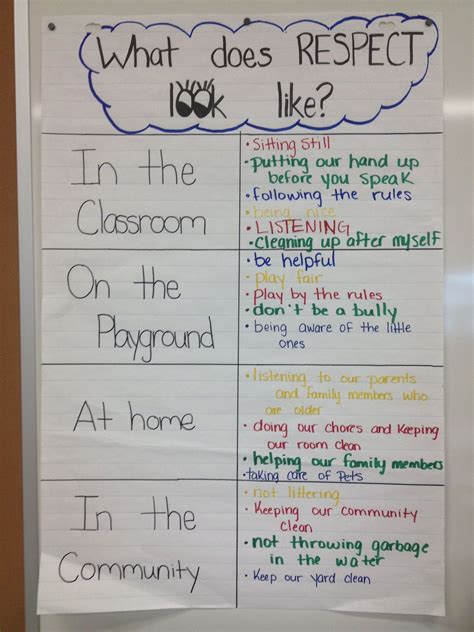 What does RESPECT
look like?
In the
Classroom
• Sitting Still
• putting our hand up
before you speak
• following the rules
• being nice
• LISTENING
• Cleaning up after myself
On the
Playground
• be helpful
• play fair
• Play by the rules
• don't be a bully
• being aware of the little
ones
At home
• listening to our parents
and family members who
are older
• doing our chores and Keeping
our room clean
• helping our family members
• taking care of Pets
In the
Community
• not littering
• Keeping our community
clean
• not throwing garbage
in the water
• Keep our yard clean